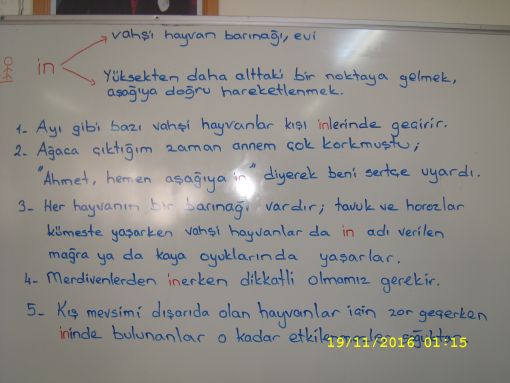 vahşi hayvan barınağı, evi
in
Yüksekten daha alttaki bir noktaya gelmek,
aşağıya doğru hareketlenmek.
1- Ayı gibi bazı vahşi hayvanlar kışı inlerinde geçirir.
2- Ağaca çıktığım zaman annem çok korkmuştu;
"Ahmet, hemen aşağıya in" diyerek beni sertçe uyardı.
3- Her hayvanın bir barınağı vardır; tavuk ve horozlar
kümeste yaşarken vahşi hayvanlar da in adı verilen
mağra ya da kaya oyuklarında yaşarlar.
4- Merdivenlerden inerken dikkatli olmamız gerekir.
5- Kış mevsimi dışarıda olan hayvanlar için zor geçerken
ininde bulunanlar o kadar
19/11/2016 01:15